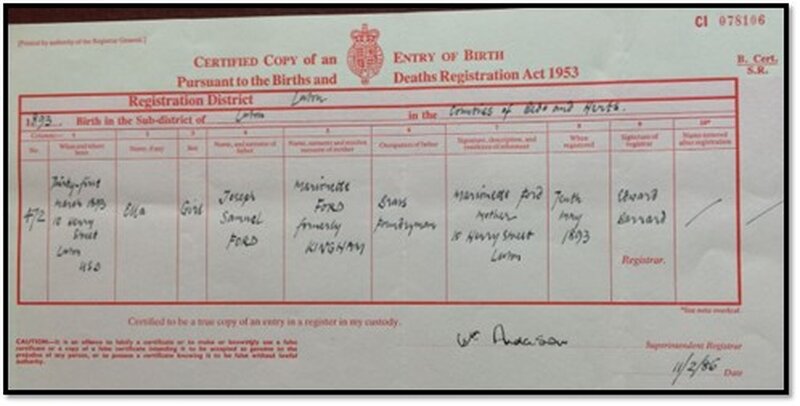 CI 078106
[Printed by authority of the Registrar General.]
CERTIFIED COPY of an ENTRY OF BIRTH
Pursuant to the Births and Deaths Registration Act 1953
B. Cert.
S.R.
Registration District Luton
1893. Birth in the Sub-district of Luton in the Counties of Beds and Herts.
Columns:- 1 2 3 4 5 6 7 8 9 10*
No. When and where born Name, if any Sex Name, and surname of father Name, surname and maiden surname of mother Occupation of father Signature, description, and residence of informant When registered Signature of registrar Name entered after registration
472
Thirty-first
March 1893
Henry
Street
Luton
USD
Ella
Girl
Joseph
Samuel
FORD
Marionette
FORD
formerly
KINGHAM
Brass
Foundryman
Marionette Ford
Mother
Henry Street
Luton
Tenth
May
1893
Edward
Barrard
Registrar.
*See note overleaf.
Certified to be a true copy of an entry in a register in my custody.
CAUTION:—It is an offence to falsify a certificate or to make or knowingly use a false
certificate or a copy of a false certificate intending it to be accepted as genuine to the
prejudice of any person, or to possess a certificate knowing it to be false without lawful
authority.
Wm Anderson
Superintendent Registrar
11/2/86 Date